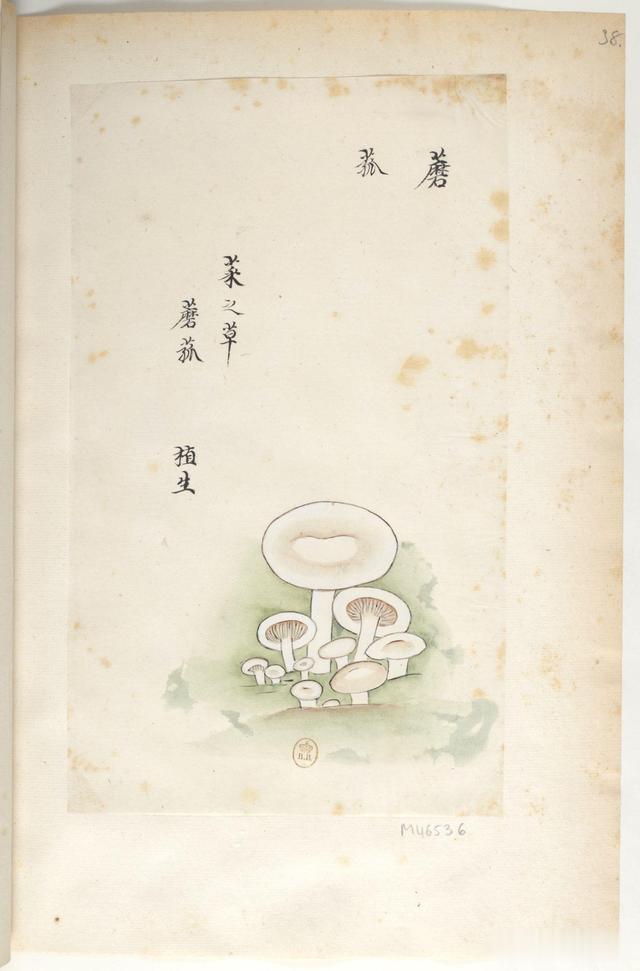 38.
蘑菰
菜之草
蘑菰 植生
B.R.
M46536